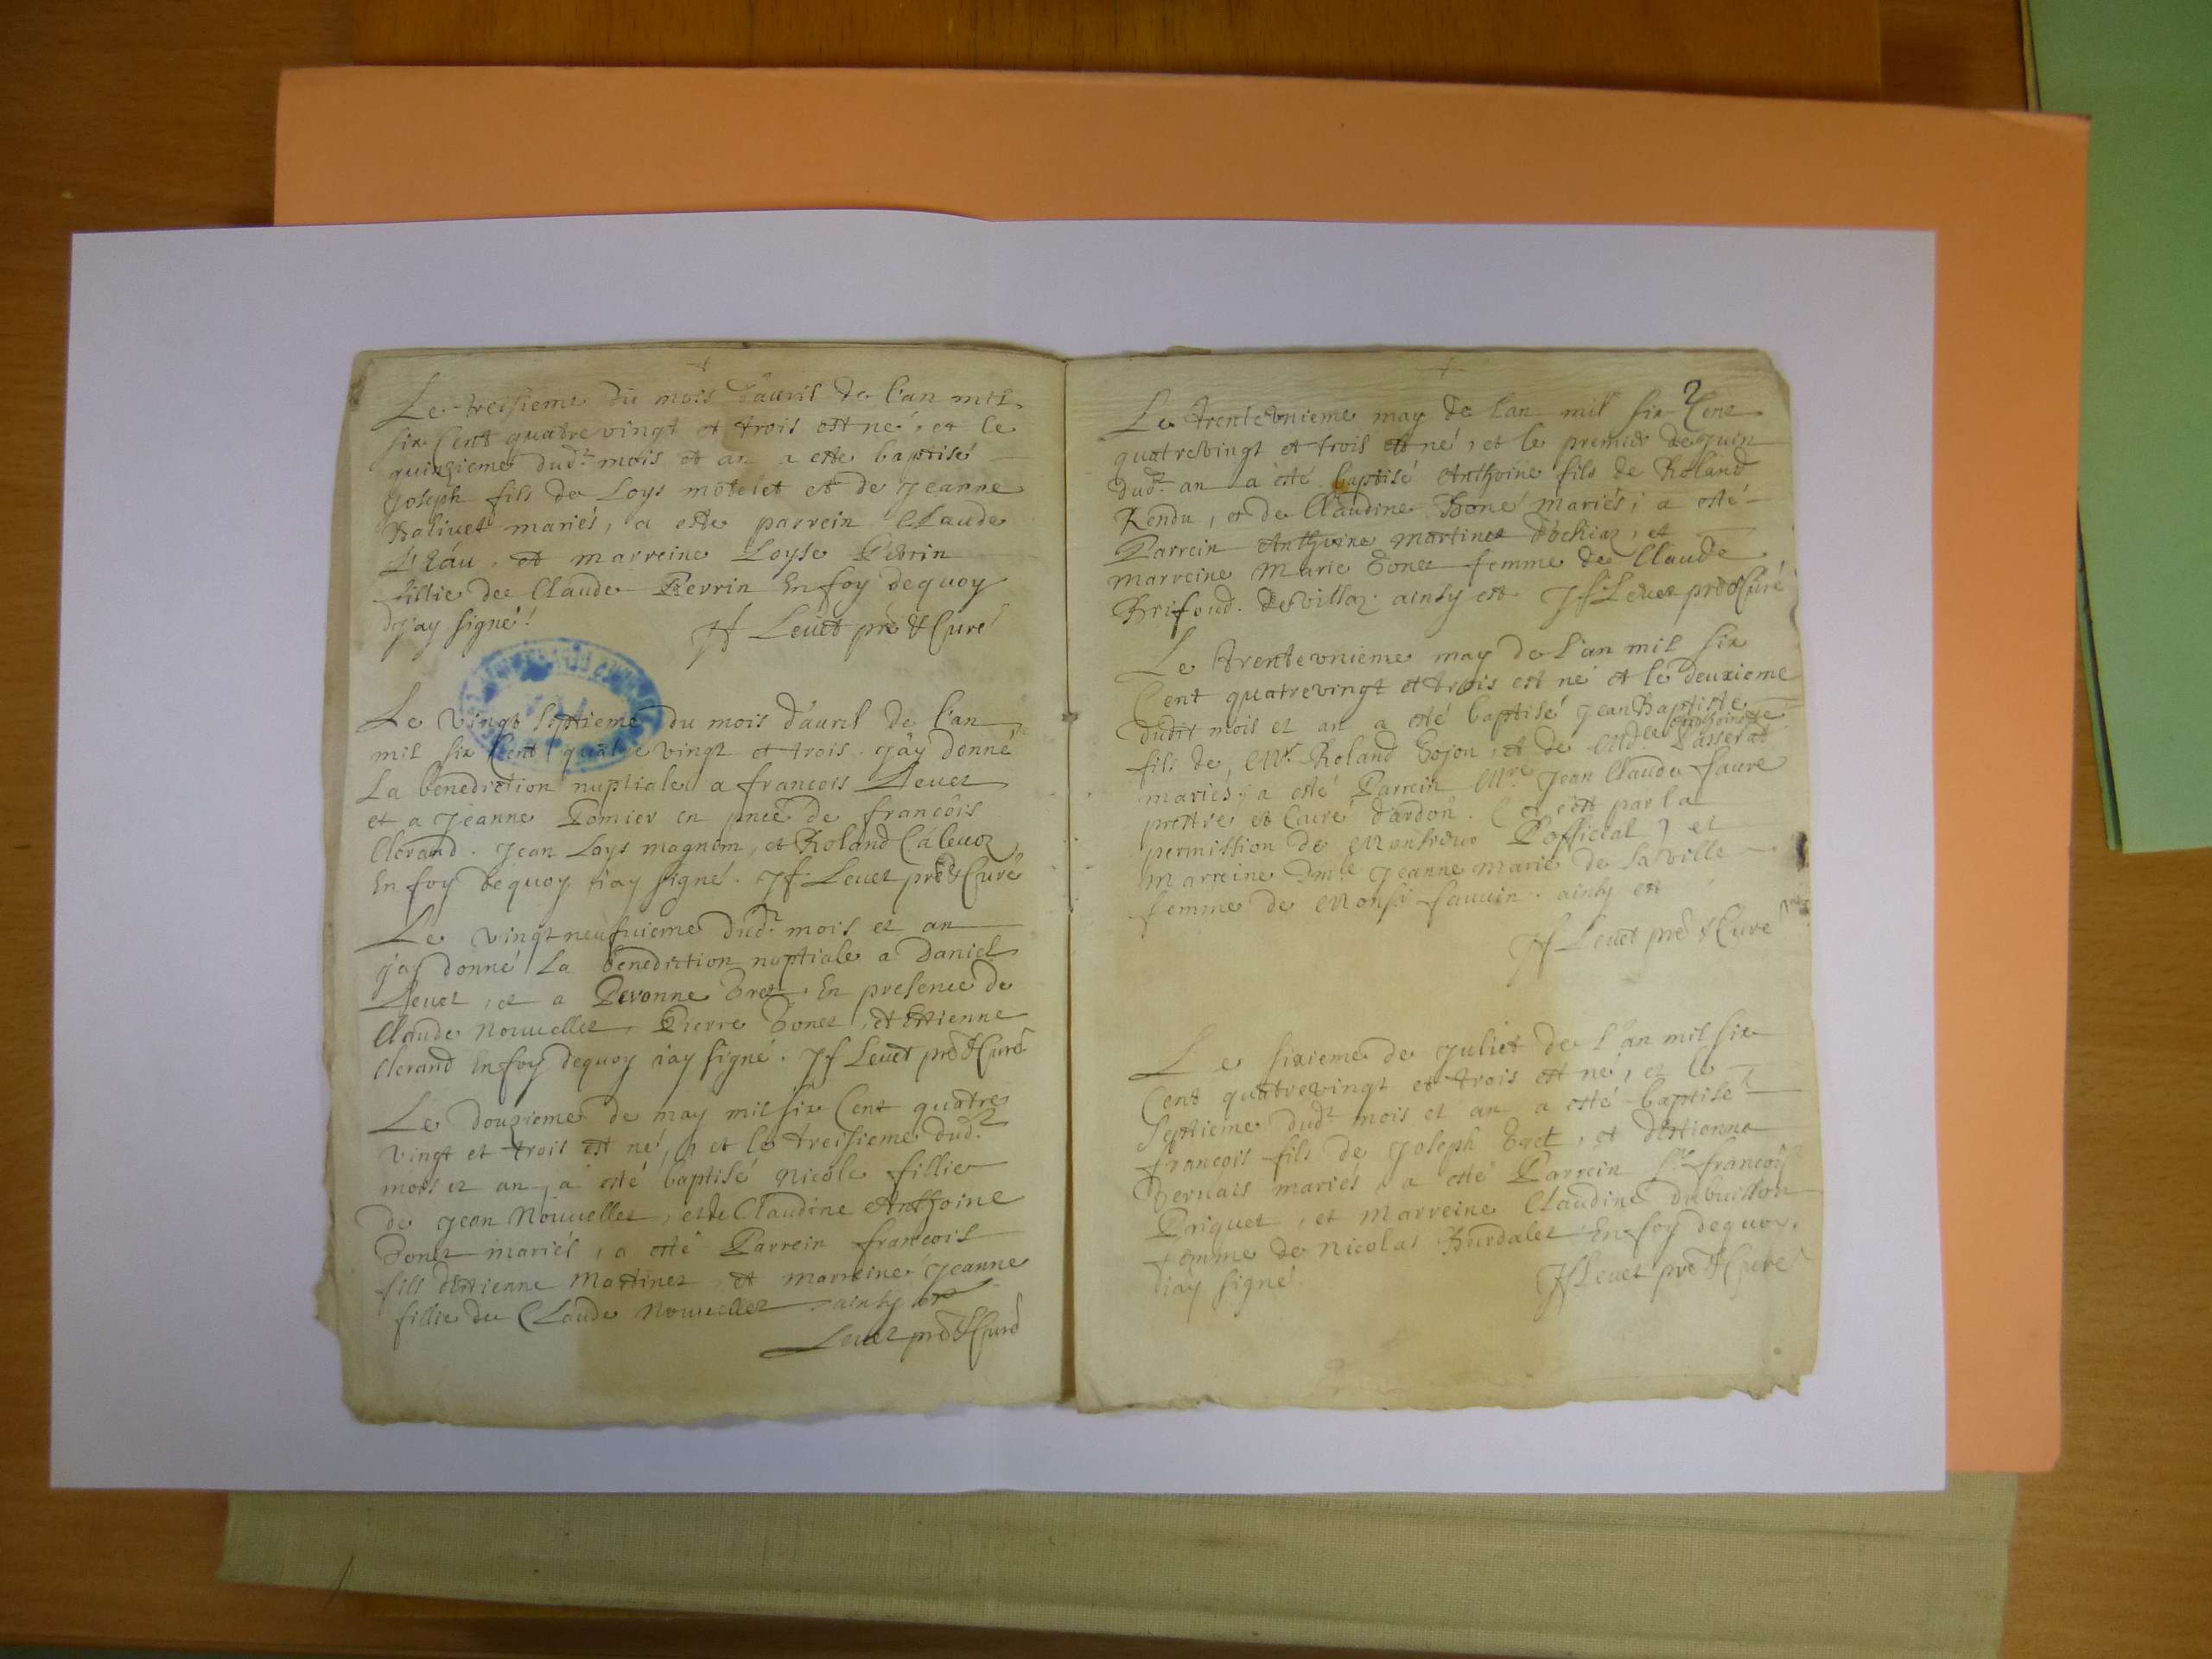 Le treisieme du mois d'auril de l'an mil
six Cent quatre vingt et trois est né, et le
quinzieme dud.t mois et an a esté baptisé
Joseph fils de Loys motelet et de Jeanne
Baliuet mariés, a esté parrein Claude
et marreine Loyse Perrin
fillie de Claude Perrin En foy dequoy
j'ay signé!
Jf Leuet prê & Curé
Le vingt septieme du mois d'auril de l'an
mil six Cent quatre vingt et trois j'ay donné
La benediction nuptiale a francois Leuet
et a Jeanne Pomier en pncê de francois
Clerand. Jean Loys magnin, et Roland Caleuoz
En foy dequoy i'ay signé. Jf. Leuet prê & Curé
Le vingt neufuieme dud.t mois et an
j'ay donné La benediction nuptiale a Daniel
Leuet, et a Peronne Tret En presence de
Claude Nouuellet, Pierre Donet, et Estienne
Clerand En foy dequoy i'ay signé. Jf Leuet prê & Curé
Le douzieme de may mil six Cent quatre
vingt et trois est né, et le treisieme dud.t
mois et an, a esté baptisé Nicole fillie
de Jean Nouuellet, et de Claudine Anthoine
Donet mariés, a esté Parrein francois
fils d'Estienne Martinet et marreine Jeanne
fillie de Claude Nouuellet ainsy est
Leuet prê & Curé
2
Le trentevnieme may de lan mil six Cent
quatrevingt et trois est né, et le premier de juin
dud.t an a esté baptisé Anthoine fils de Roland
Rendu, et de Claudine Boné mariés; a esté
Parrein Anthoine Martinet d'ochiaz, et
marreine Marie Donet femme de Claude
Brifoud. de villaz. ainsy est Jf. Leuet prê & Curé
Le trentevnieme may de l'an mil six
Cent quatrevingt et trois est né et le deuxieme
dudit mois et an a esté baptisé Jean Baptiste
fils de Mr. Roland Bojon, et de Passerat
mariés; a esté Parrein Mre Jean Claude faure
prestre et Curé d'ardon. (et c'est par la
permission de Monsieur l'official) et
marreine Dm.le Jeanne Marie de La ville
femme de Monsr. fauuin. ainsy est
Jf Leuet prê & Curé
Le sixieme de Juliet de l'an mil six
Cent quatrevingt et trois est né, et le
septieme dud.t mois et an a esté baptisé
francois fils de Joseph Tret, et d'Estienna
Bernais mariés, a esté Parrein Sr. francois
Briquet, et Marreine Claudine dubuisson
femme de Nicolas Burdalet En foy dequoy.
i'ay signé.
Jf Leuet prê & Curé